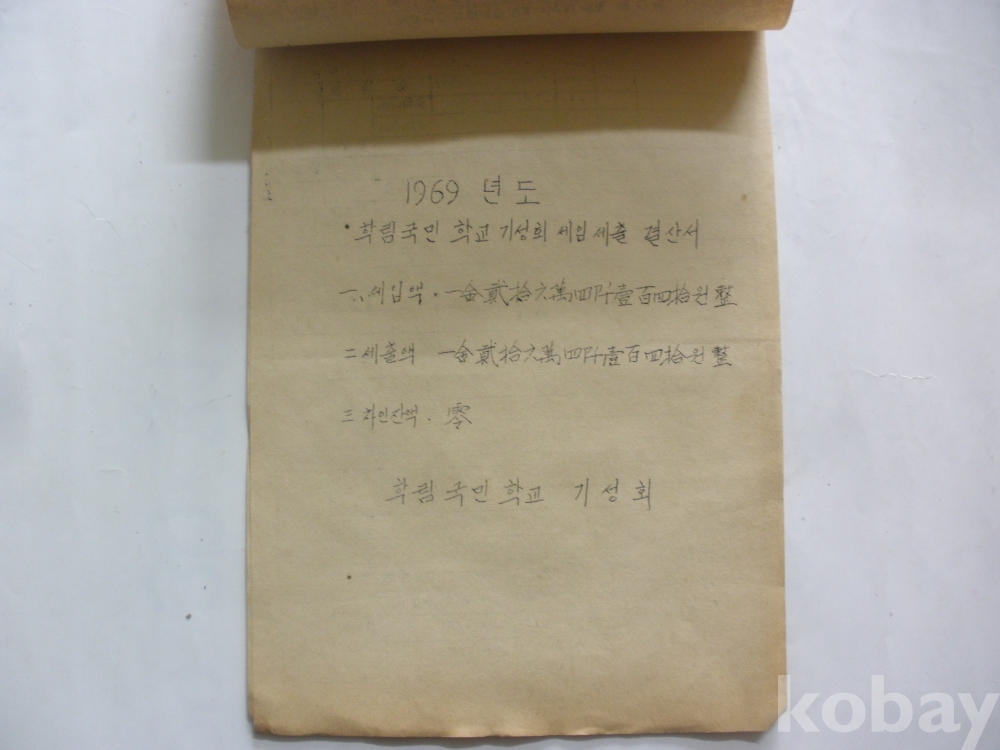 1969 년도
학림국민 학교 기성회 세입세출 결산서
一. 세입액. 一金貳拾六萬四仟壹百四拾원整
二 세출액 一金貳拾六萬四仟壹百四拾원整
三 차인잔액. 零
학림국민학교 기성회
kobay